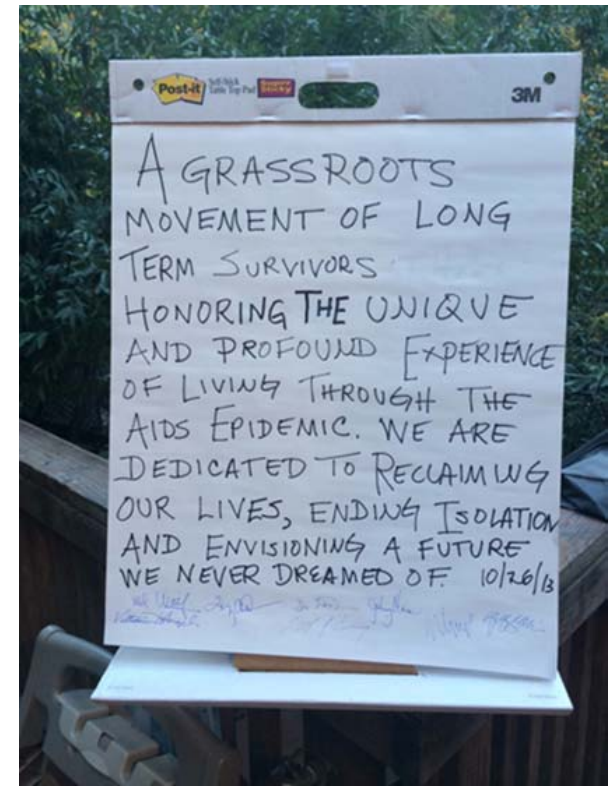 Post-it Self-Stick Table Top Pad Super Sticky 3M
A GRASSROOTS
MOVEMENT OF LONG
TERM SURVIVORS
HONORING THE UNIQUE
AND PROFOUND EXPERIENCE
OF LIVING THROUGH THE
AIDS EPIDEMIC. WE ARE
DEDICATED TO RECLAIMING
OUR LIVES, ENDING ISOLATION
AND ENVISIONING A FUTURE
WE NEVER DREAMED OF. 10/26/13